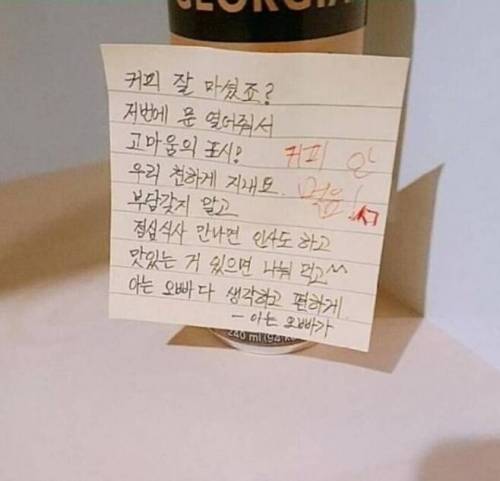 GEORGIA
커피 잘 마셨죠?
저번에 문 열어줘서
고마움의 표시?
우리 친하게 지내요
부담갖지 말고
점심식사 만나면 인사도 하고
맛있는 거 있으면 나눠 먹고^^
아는 오빠다 생각하고 편하게
- 아는 오빠가
커피 안
먹음!
240 ml (94 k